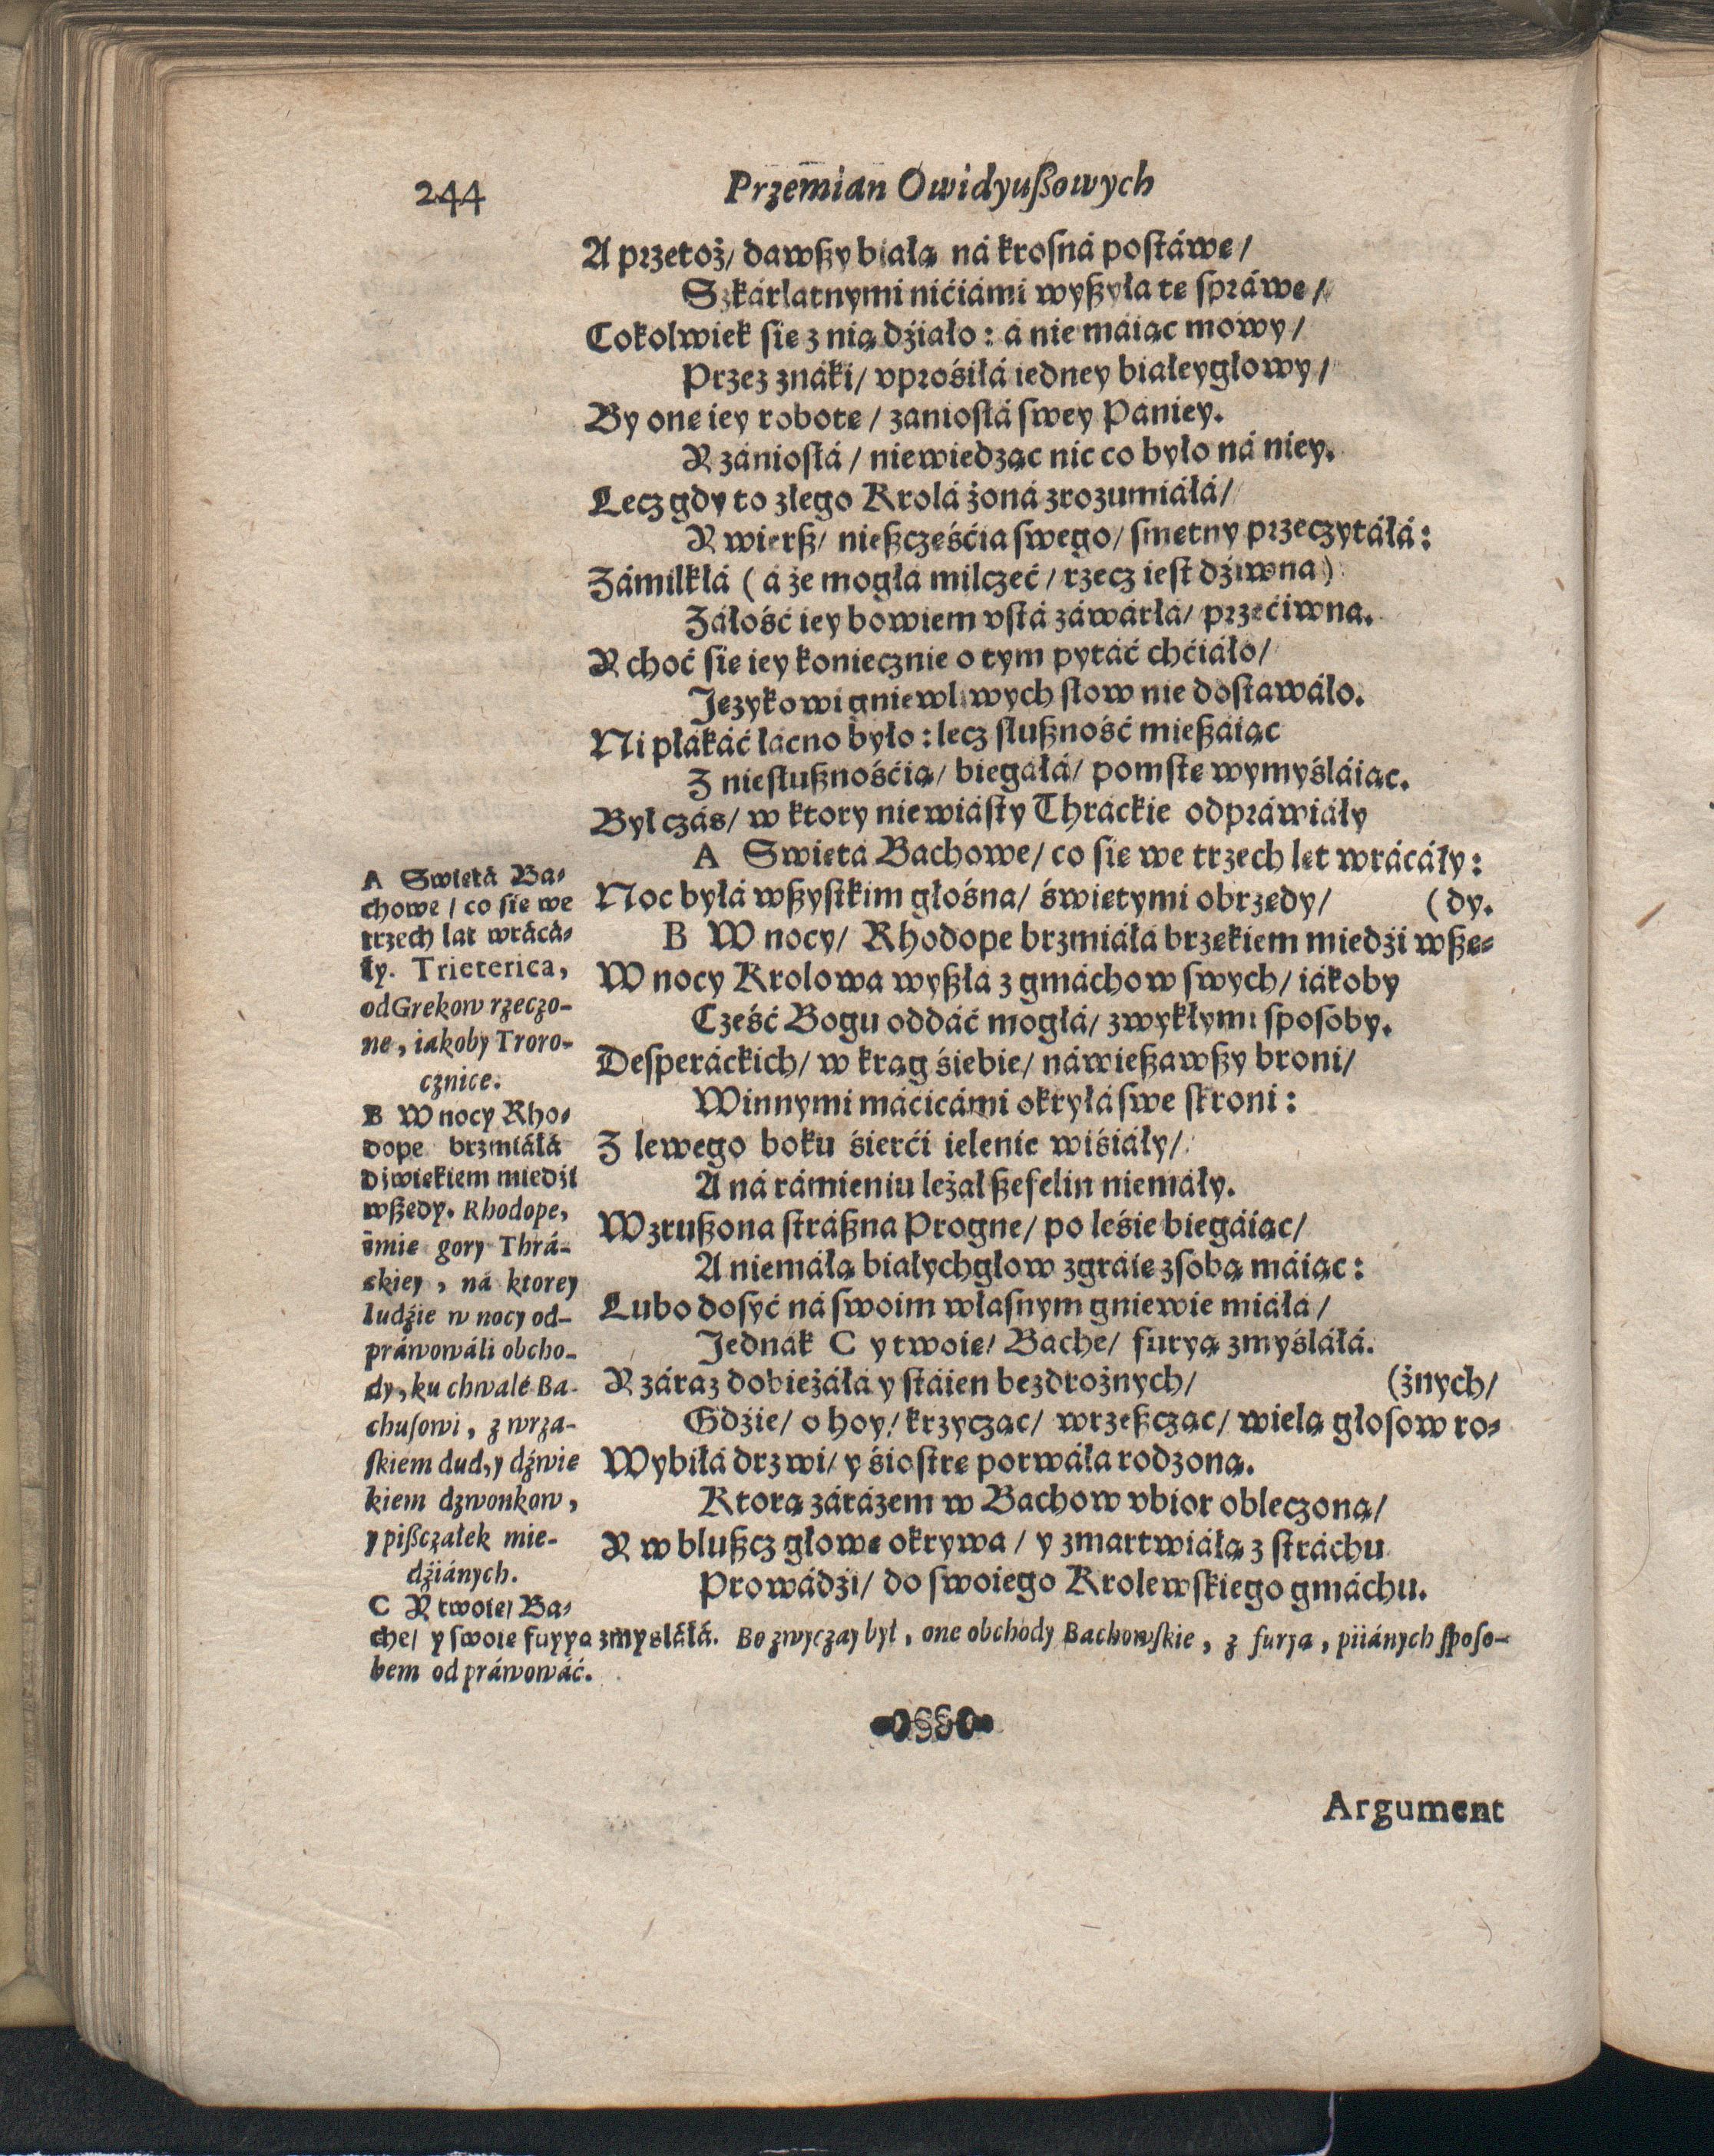 244
Przemian Owidyußowych
A przetoż/ dawßy białą ná krosná postáwe/
Szkárłatnymi nićiámi wyßyła te spráwe/
Cokolwiek sie z nią dźiało: á nie máiąc mowy/
Przez znáki/ vprośiłá iedney białeygłowy/
By one iey robote/ zaniosłá swey Pániey.
Y zániosłá/ niewiedząc nic co było ná niey.
Lecz gdy to złego Krolá żoná zrozumiáłá/
Y wierß/ nießcześćia swego/ smetny przeczytáłá:
Zámilkłá (á że mogłá milczeć/ rzecz iest dźiwna)
Záłość iey bowiem vstá záwárłá/ przećiwna.
Y choć sie iey koniecznie o tym pytáć chćiáło/
Jezykowi gniewliwych słow nie dostawáło.
Ni płákáć łácno było: lecz słußność mießáiąc
Z niesłußnośćią/ biegáłá/ pomste wymyśláiąc.
Był czás/ w ktory niewiásty Thráckie odpráwiáły
A Swietá Bachowe/ co sie we trzech let wrácáły:
Noc byłá wßystkim głośna/ świetymi obrzedy/
(dy.
B W nocy/ Rhodope brzmiáłá brzekiem miedźi wße-
W nocy Krolowa wyßłá z gmáchow swych/ iákoby
Cześć Bogu oddáć mogłá/ zwykłymi sposoby.
Desperáckich/ w krąg śiebie/ náwießawßy broni/
Winnymi máćicámi okryłá swe skroni:
Z lewego boku śierći ielenie wiśiáły/
A ná rámieniu leżał ßefelin niemáły.
Wzrußona stráßna Progne/ po leśie biegáiąc/
A niemáłą białychgłow zgráie z sobą máiąc:
Lubo dosyć ná swoim własnym gniewie miáłá/
Jednák C y twoie/ Bache/ furyą zmyśláłá.
Y záraz dobieżáłá y stáien bezdrożnych/
(żnych/
Gdźie/ o hoy/ krzycząc/ wrzeßcząc/ wielą głosow ro-
Wybiłá drzwi/ y śiostre porwáłá rodzoną.
Ktorą zárázem w Bachow vbior obleczoną/
Y w blußcz głowe okrywa/ y zmartwiáłą z stráchu
Prowádźi/ do swoiego Krolewskiego gmáchu.
A Swietá Ba-
chowe/ co sie we
trzech lat wrácá-
ły. Trieterica,
od Grekow rzeczo-
ne, iakoby Troro-
cznice.
B W nocy Rho-
dope brzmiáłá
dźwiekiem miedźi
wßedy. Rhodope,
imie gory Thrá-
ckiey, ná ktorey
ludźie w nocy od-
práwowáli obcho-
dy, ku chwale Ba-
chusowi, z wrza-
skiem dud, y dźwie
kiem dzwonkow,
y pißczałek mie-
dźiánych.
C Y twoie/ Ba-
che/ y swoie furyą zmyśláłá. Bo zwyczay był, one obchody Bachowskie, z furyą, piiánych sposo-
bem odpráwowáć.
Argument